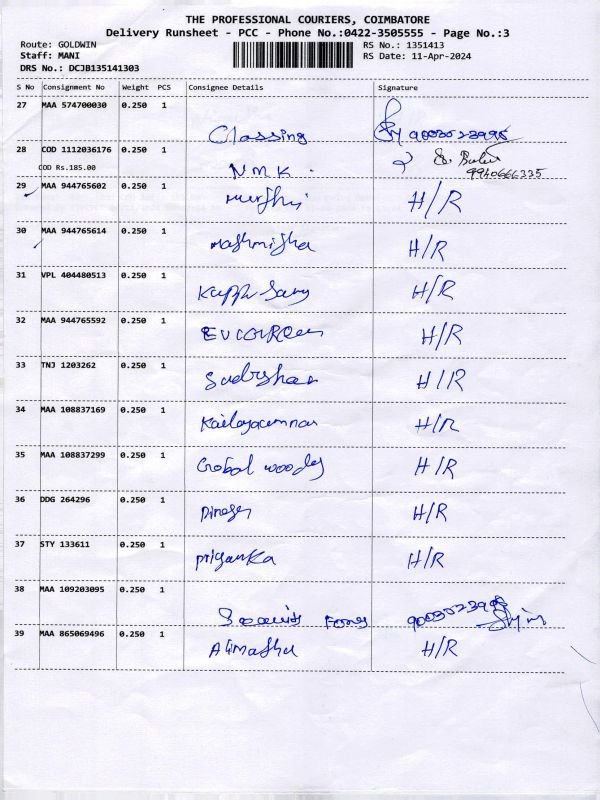 THE PROFESSIONAL COURIERS, COIMBATORE
Delivery Runsheet - PCC - Phone No.:0422-3505555 - Page No.:3
Route: GOLDWIN RS No.: 1351413
Staff: MANI RS Date: 11-Apr-2024
DRS No.: DCJB135141303
S No Consignment No Weight PCS Consignee Details Signature
27 MAA 574700030 0.250 1
Classing 9003023995
28 COD 1112036176 0.250 1
COD Rs.185.00 N M K . 9940666335
29 MAA 944765602 0.250 1 H/R
30 MAA 944765614 0.250 1 H/R
31 VPL 404480513 0.250 1 H/R
32 MAA 944765592 0.250 1 H/R
33 TNJ 1203262 0.250 1 H/R
34 MAA 108837169 0.250 1 H/R
35 MAA 108837299 0.250 1 H/R
36 DDG 264296 0.250 1 Dinesh H/R
37 STY 133611 0.250 1 Priyanka H/R
38 MAA 109203095 0.250 1
39 MAA 865069496 0.250 1 H/R